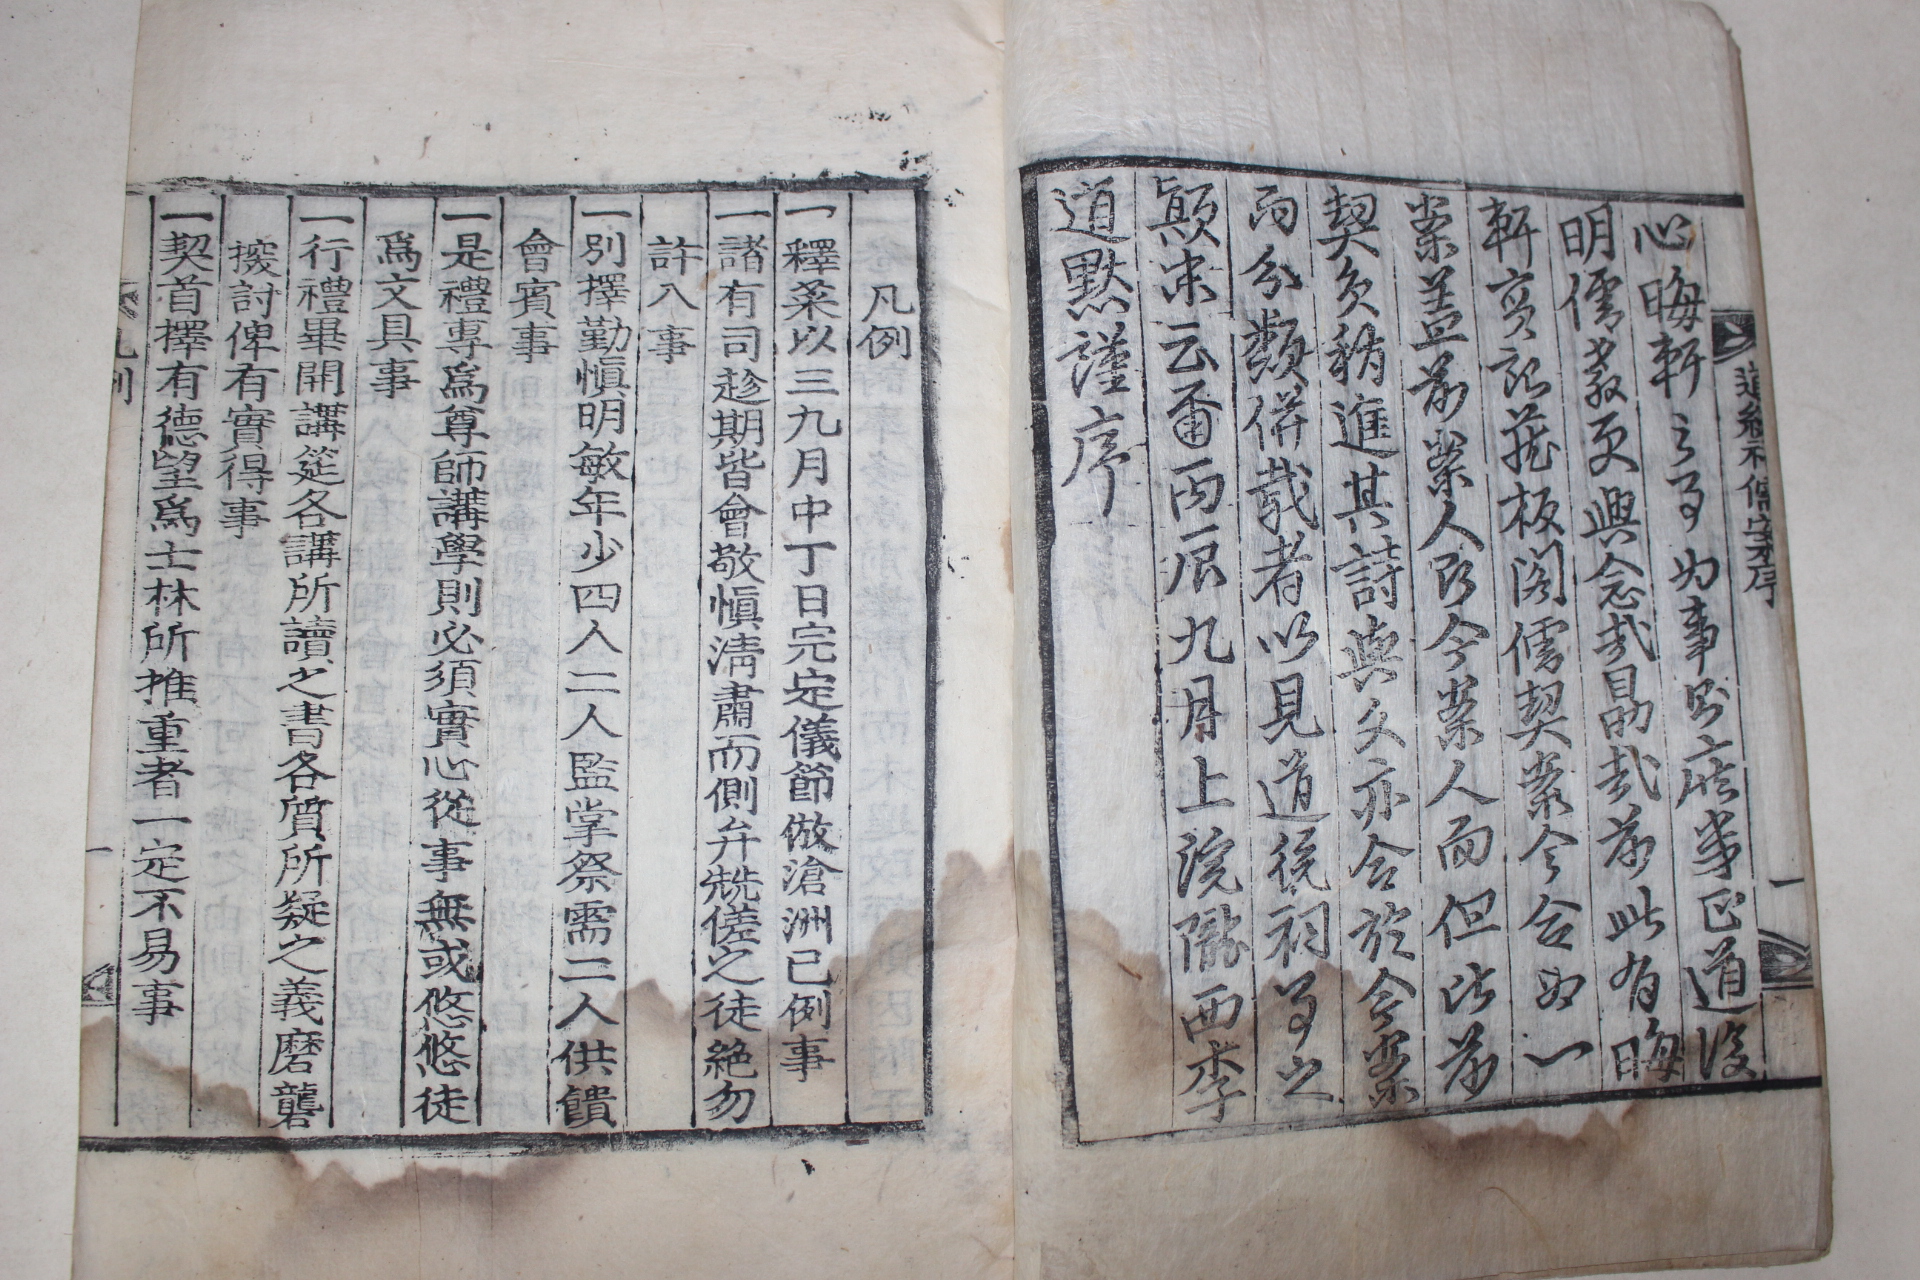 心晦軒之爲事則
道後
明儒敎更興念哉勗哉前此有晦
軒實記藏板閣儒契案今合如一
案盖前案人卽今案人而但此前
契多稍進其詩與文亦合於今案
而分類倂載者以見道後祠事之
顚末云爾丙辰九月上浣隴西李
道默謹序
凡例
一釋菜以三九月中丁日完定儀節倣滄洲已例事
一諸有司趁期皆會敬愼淸肅而側弁㑃傞之徒絶勿
許入事
一別擇勤愼明敏年少四人二人監掌祭需二人供饋
會賓事
一是禮專爲尊師講學則必須實心從事無或悠悠徒
爲文具事
一行禮畢開講筵各講所讀之書各質所疑之義磨礱
討俾有實得事
一契首擇有德望爲士林所推重者一定不易事
凡例
一